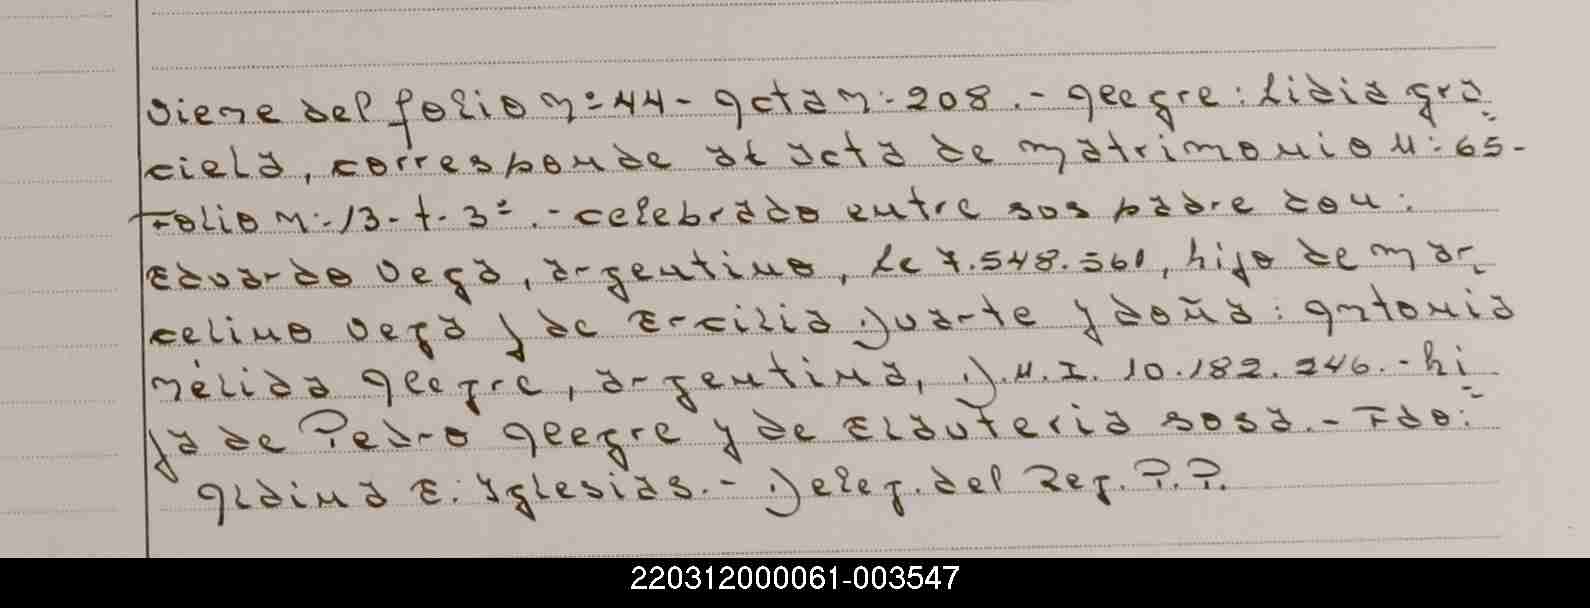 Viene del folio n:º 44 - Acta n:- 208.- Alegre: Lidia Gra=
ciela, corresponde al acta de matrimonio N:- 65-
Folio n:- 13- t- 3º.- celebrado entre sus padre don:
Eduardo Vega, argentino, Le 7.548.561, hijo de mar=
celino Vega y de Ercilia Duarte y doña: Antonia
nélida Alegre, argentina, D.N.I. 10.182.246.- hi=
ja de Pedro Alegre y de Elauteria Sosa.- Fdo:
Gladina E. Yglesias.- Deleg. del Reg. P.P.
220312000061-003547